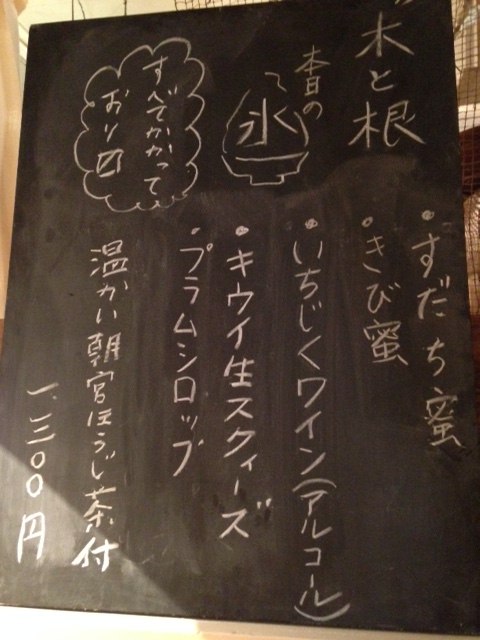 木と根
本日の
氷
すべてかかって
おり〼
・すだち蜜
・きび蜜
・いちじくワイン(アルコール)
・キウイ生スクィーズ
・プラムシロップ
温かい朝宮ほうじ茶付
一、三〇〇円